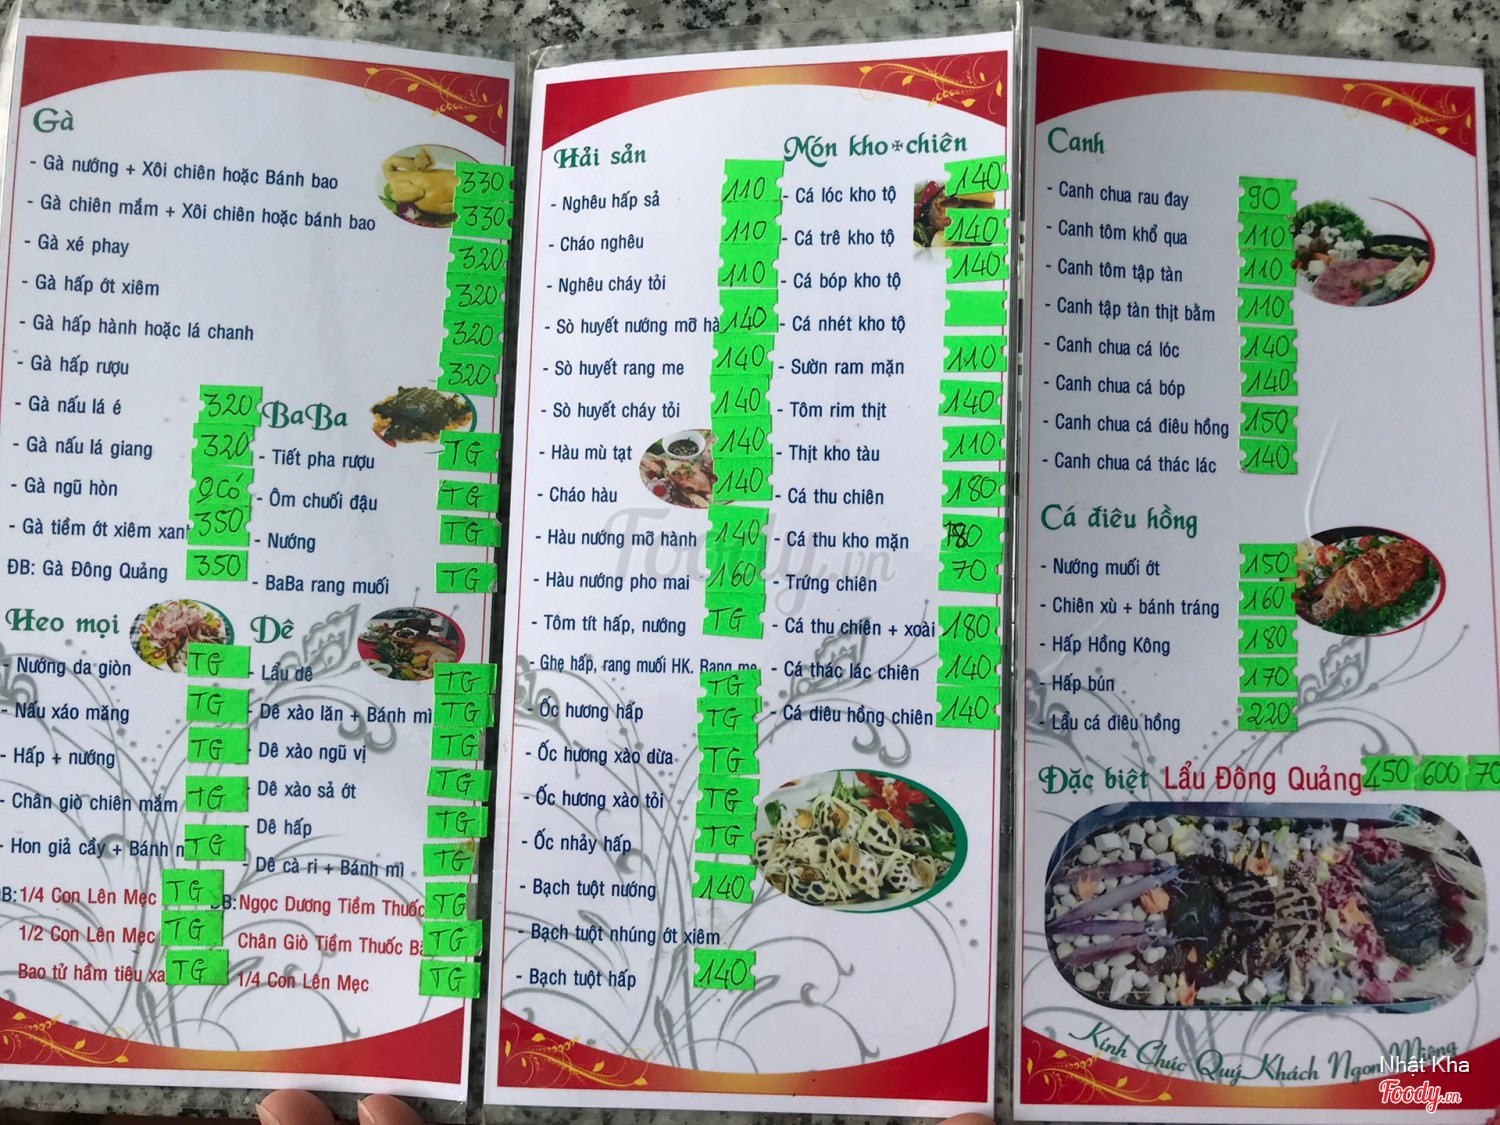 Gà
- Gà nướng + Xôi chiên hoặc Bánh bao 330
- Gà chiên mắm + Xôi chiên hoặc bánh bao 330
- Gà xé phay 320
- Gà hấp ớt xiêm 320
- Gà hấp hành hoặc lá chanh 320
- Gà hấp rượu 320
- Gà nấu lá é 320
- Gà nấu lá giang 320
- Gà ngũ hòn
- Gà tiềm ớt xiêm xanh 350
ĐB: Gà Đông Quảng 350
BaBa
- Tiết pha rượu TG
- Ôm chuối đậu TG
- Nướng TG
- BaBa rang muối TG
Heo mọi
- Nướng da giòn TG
- Nấu xáo măng TG
- Hấp + nướng TG
- Chân giò chiên mắm TG
- Hon giả cầy + Bánh TG
ĐB: 1/4 Con Lên Mẹc TG
1/2 Con Lên Mẹc TG
Bao tử hầm tiêu TG
Dê
- Lẩu dê TG
- Dê xào lăn + Bánh mì TG
- Dê xào ngũ vị TG
- Dê xào sả ớt TG
- Dê hấp TG
- Dê cà ri + Bánh mì TG
ĐB: Ngọc Dương Tiềm Thuốc TG
Chân Giò Tiềm Thuốc TG
1/4 Con Lên Mẹc TG
Hải sản
- Nghêu hấp sả 110
- Cháo nghêu 110
- Nghêu cháy tỏi 110
- Sò huyết nướng mỡ 140
- Sò huyết rang me 140
- Sò huyết cháy tỏi 140
- Hàu mù tạt 140
- Cháo hàu 140
- Hàu nướng mỡ hành 140
- Hàu nướng pho mai 160
- Tôm tít hấp, nướng TG
- Ghẹ hấp, rang muối HK. Rang me TG
- Ốc hương hấp TG
- Ốc hương xào dừa TG
- Ốc hương xào tỏi TG
- Ốc nhảy hấp TG
- Bạch tuột nướng 140
- Bạch tuột nhúng ớt xiêm
- Bạch tuột hấp 140
Món kho + chiên
- Cá lóc kho tộ 140
- Cá trê kho tộ 140
- Cá bóp kho tộ 140
- Cá nhét kho tộ
- Sườn ram mặn 110
- Tôm rim thịt 140
- Thịt kho tàu 110
- Cá thu chiên 180
- Cá thu kho mặn 180
- Trứng chiên 70
- Cá thu chiên + xoài 180
- Cá thác lác chiên 140
- Cá diêu hồng chiên 140
Canh
- Canh chua rau đay 90
- Canh tôm khổ qua 110
- Canh tôm tập tàn 110
- Canh tập tàn thịt bằm 110
- Canh chua cá lóc 140
- Canh chua cá bóp 140
- Canh chua cá điêu hồng 150
- Canh chua cá thác lác 140
Cá điêu hồng
- Nướng muối ớt 150
- Chiên xù + bánh tráng 160
- Hấp Hồng Kông 180
- Hấp bún 170
- Lẩu cá điêu hồng 220
Đặc biệt Lẩu Đông Quảng 450 600 70
Kính Chúc Quý Khách Ngon Miệng
Foody.vn
Nhật Kha
Foody.vn